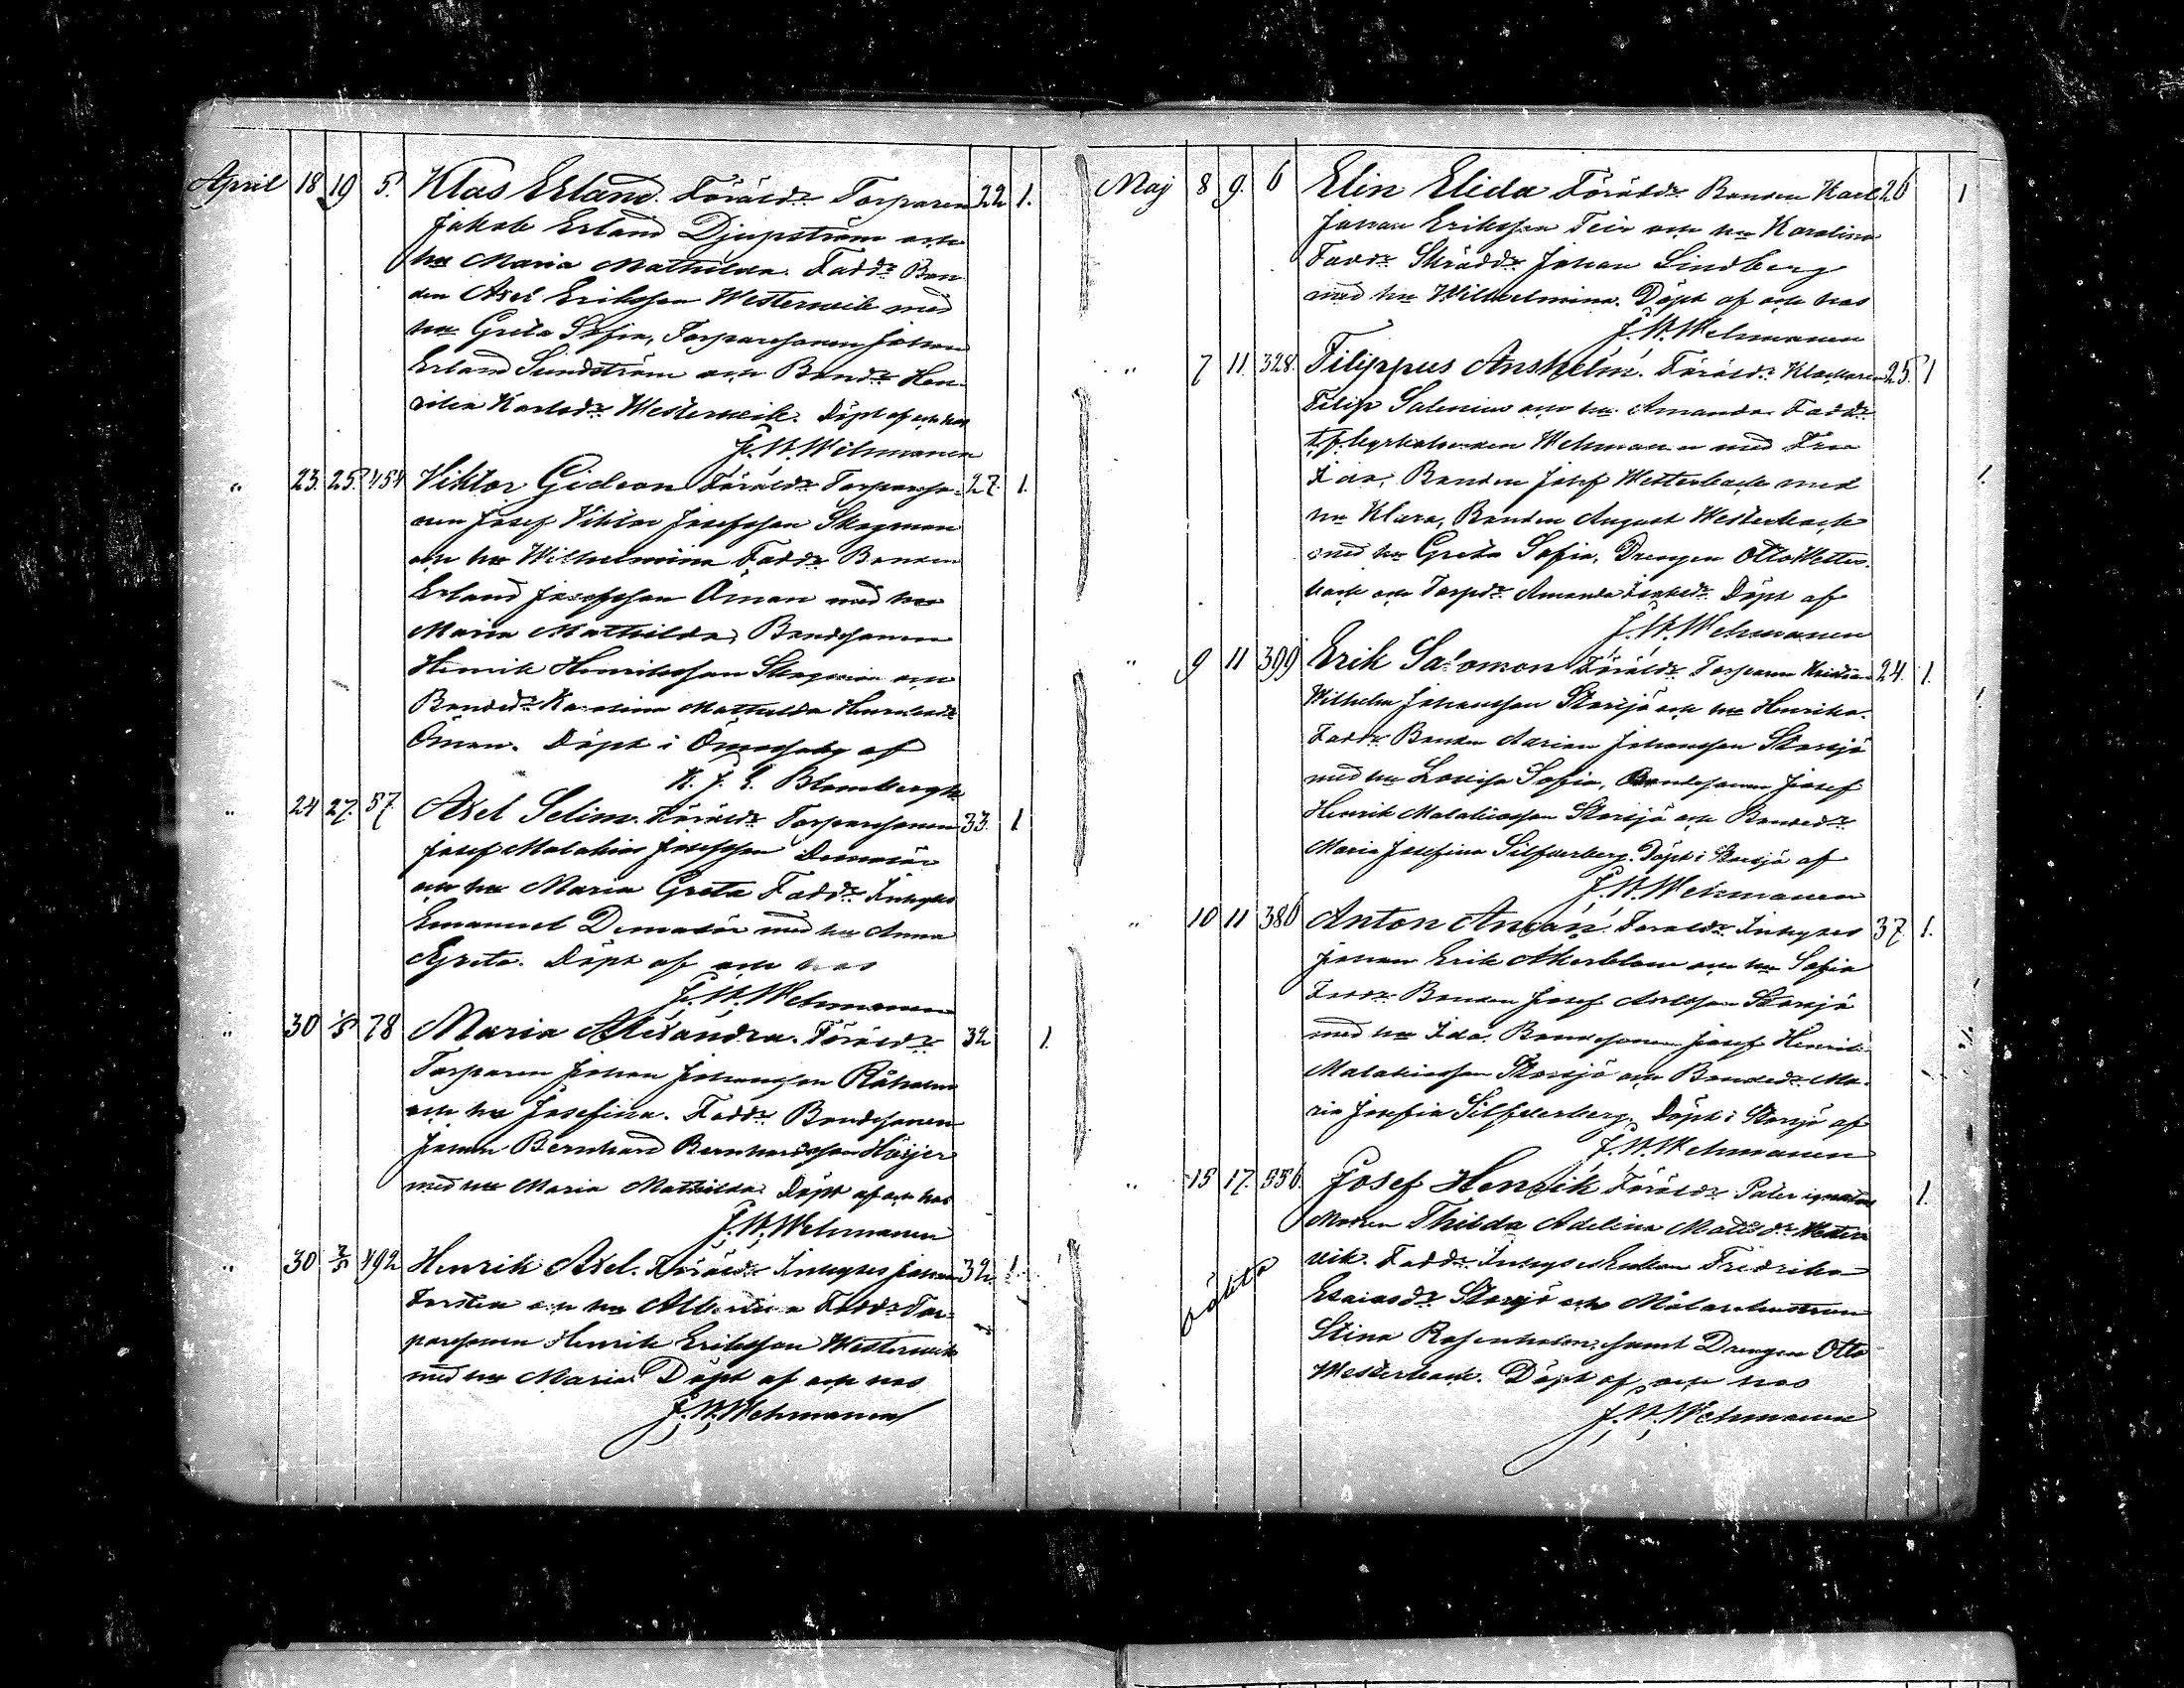 April 18 19 5. Klas Erland. Föräldr Torparen 22 1.
Jakob Erland Djupström och
hu Maria Mathilda. Faddr Bon
den Axel Eriksson Westervik med
hu Greta Sofia, Torparesonen Johan
Erland Sundström och Bondr Hen
rika Karlsdr Westervik. Döpt af och hos
J. W. Wehmanen
" 23. 25. 454 Viktor Gideon Föräldr Torpareso- 27. 1.
nen Josef Viktor Josefsson Skogman
och hu Wilhelmina Faddr Bonden
Erland Josefsson Öman med hu
Maria Mathilda, Bondesonen
Henrik Henriksson Skogman och
Bondedr Karolina Mathilda Henriksdr
Öman. Döpt i af
K. J. E. Blombergh
" 24 27. 57. Axel Selim. Föräldr Torparesonen 33. 1
Josef Malakias Josefsson
och hu Maria Greta Faddr Inhyses
Emanuel med hu Anna
Greta. Döpt af och hos
J. W. Wehmanen
" 30 1/5 78 Maria Alexandra. Föräldr 32 1.
Torparen Johan Johansson Råholm
och hu Josefina. Faddr Bondesonen
Johan Bernhard Bernhardsson Höijer
med hu Maria Mathilda. Döpt af och hos
J. W. Wehmanen
" 30 2/5 492 Henrik Axel. Föräldr Inhyses Johan 32 1.
och hu Albertina Faddr Tor-
paresonen Henrik Eriksson Westervik
med hu Maria. Döpt af och hos
J. W. Wehmanen
Maj 8 9. 6 Elin Elida Föräldr Bonden Karl 26 1
Johan Eriksson Teir och hu Karolina
Faddr Skräddr Johan Lindberg
med hu Wilhelmina. Döpt af och hos
J. W. Wehmanen
" 7 11. 328. Filippus Anshelm. Föräldr Klockaren 25. 1
Filip Salenius och hu Amanda. Faddr
t.f. kyrkoherden Wehmanen med Fru
Ida, Bonden Josef Westerback med
hu Klara, Bonden August Westerback
med hu Greta Sofia, Drengen Otto Wester-
back och Torpdr Amanda Döpt af
J. W. Wehmanen
" 9 11 399 Erik Salomon Föräldr Torparen 24. 1.
Wilhelm Johansson Storsjö och hu Henrika.
Faddr Bonden Adrian Johansson Storsjö
med hu Lovisa Sofia, Bondesonen Josef
Henrik Malakiasson Storsjö och Bondedr
Maria Josefina Silfverberg. Döpt i Storsjö af
J. W. Wehmanen
" 10 11 386 Anton Aman. Föräldr Inhyses 37. 1.
Johan Erik Åkerblom och hu Sofia
Faddr Bonden Josef Storsjö
med hu Ida. Bondesonen Josef Henrik
Malakiasson Storsjö och Bondedr Ma-
ria Josefina Silfverberg. Döpt i Storsjö af
J. W. Wehmanen
" 15 17. 556. Josef Henrik Föräldr Pater ignotus 1.
oäkta Modren Thilda Adelina Mattsdr Wester
vik. Faddr Inhyses Enkan Fredrika
Esaiasdr Storsjö och Målarehustrun
Stina Rosenholm, samt Drengen Otto
Westerback. Döpt af och hos
J. W. Wehmanen